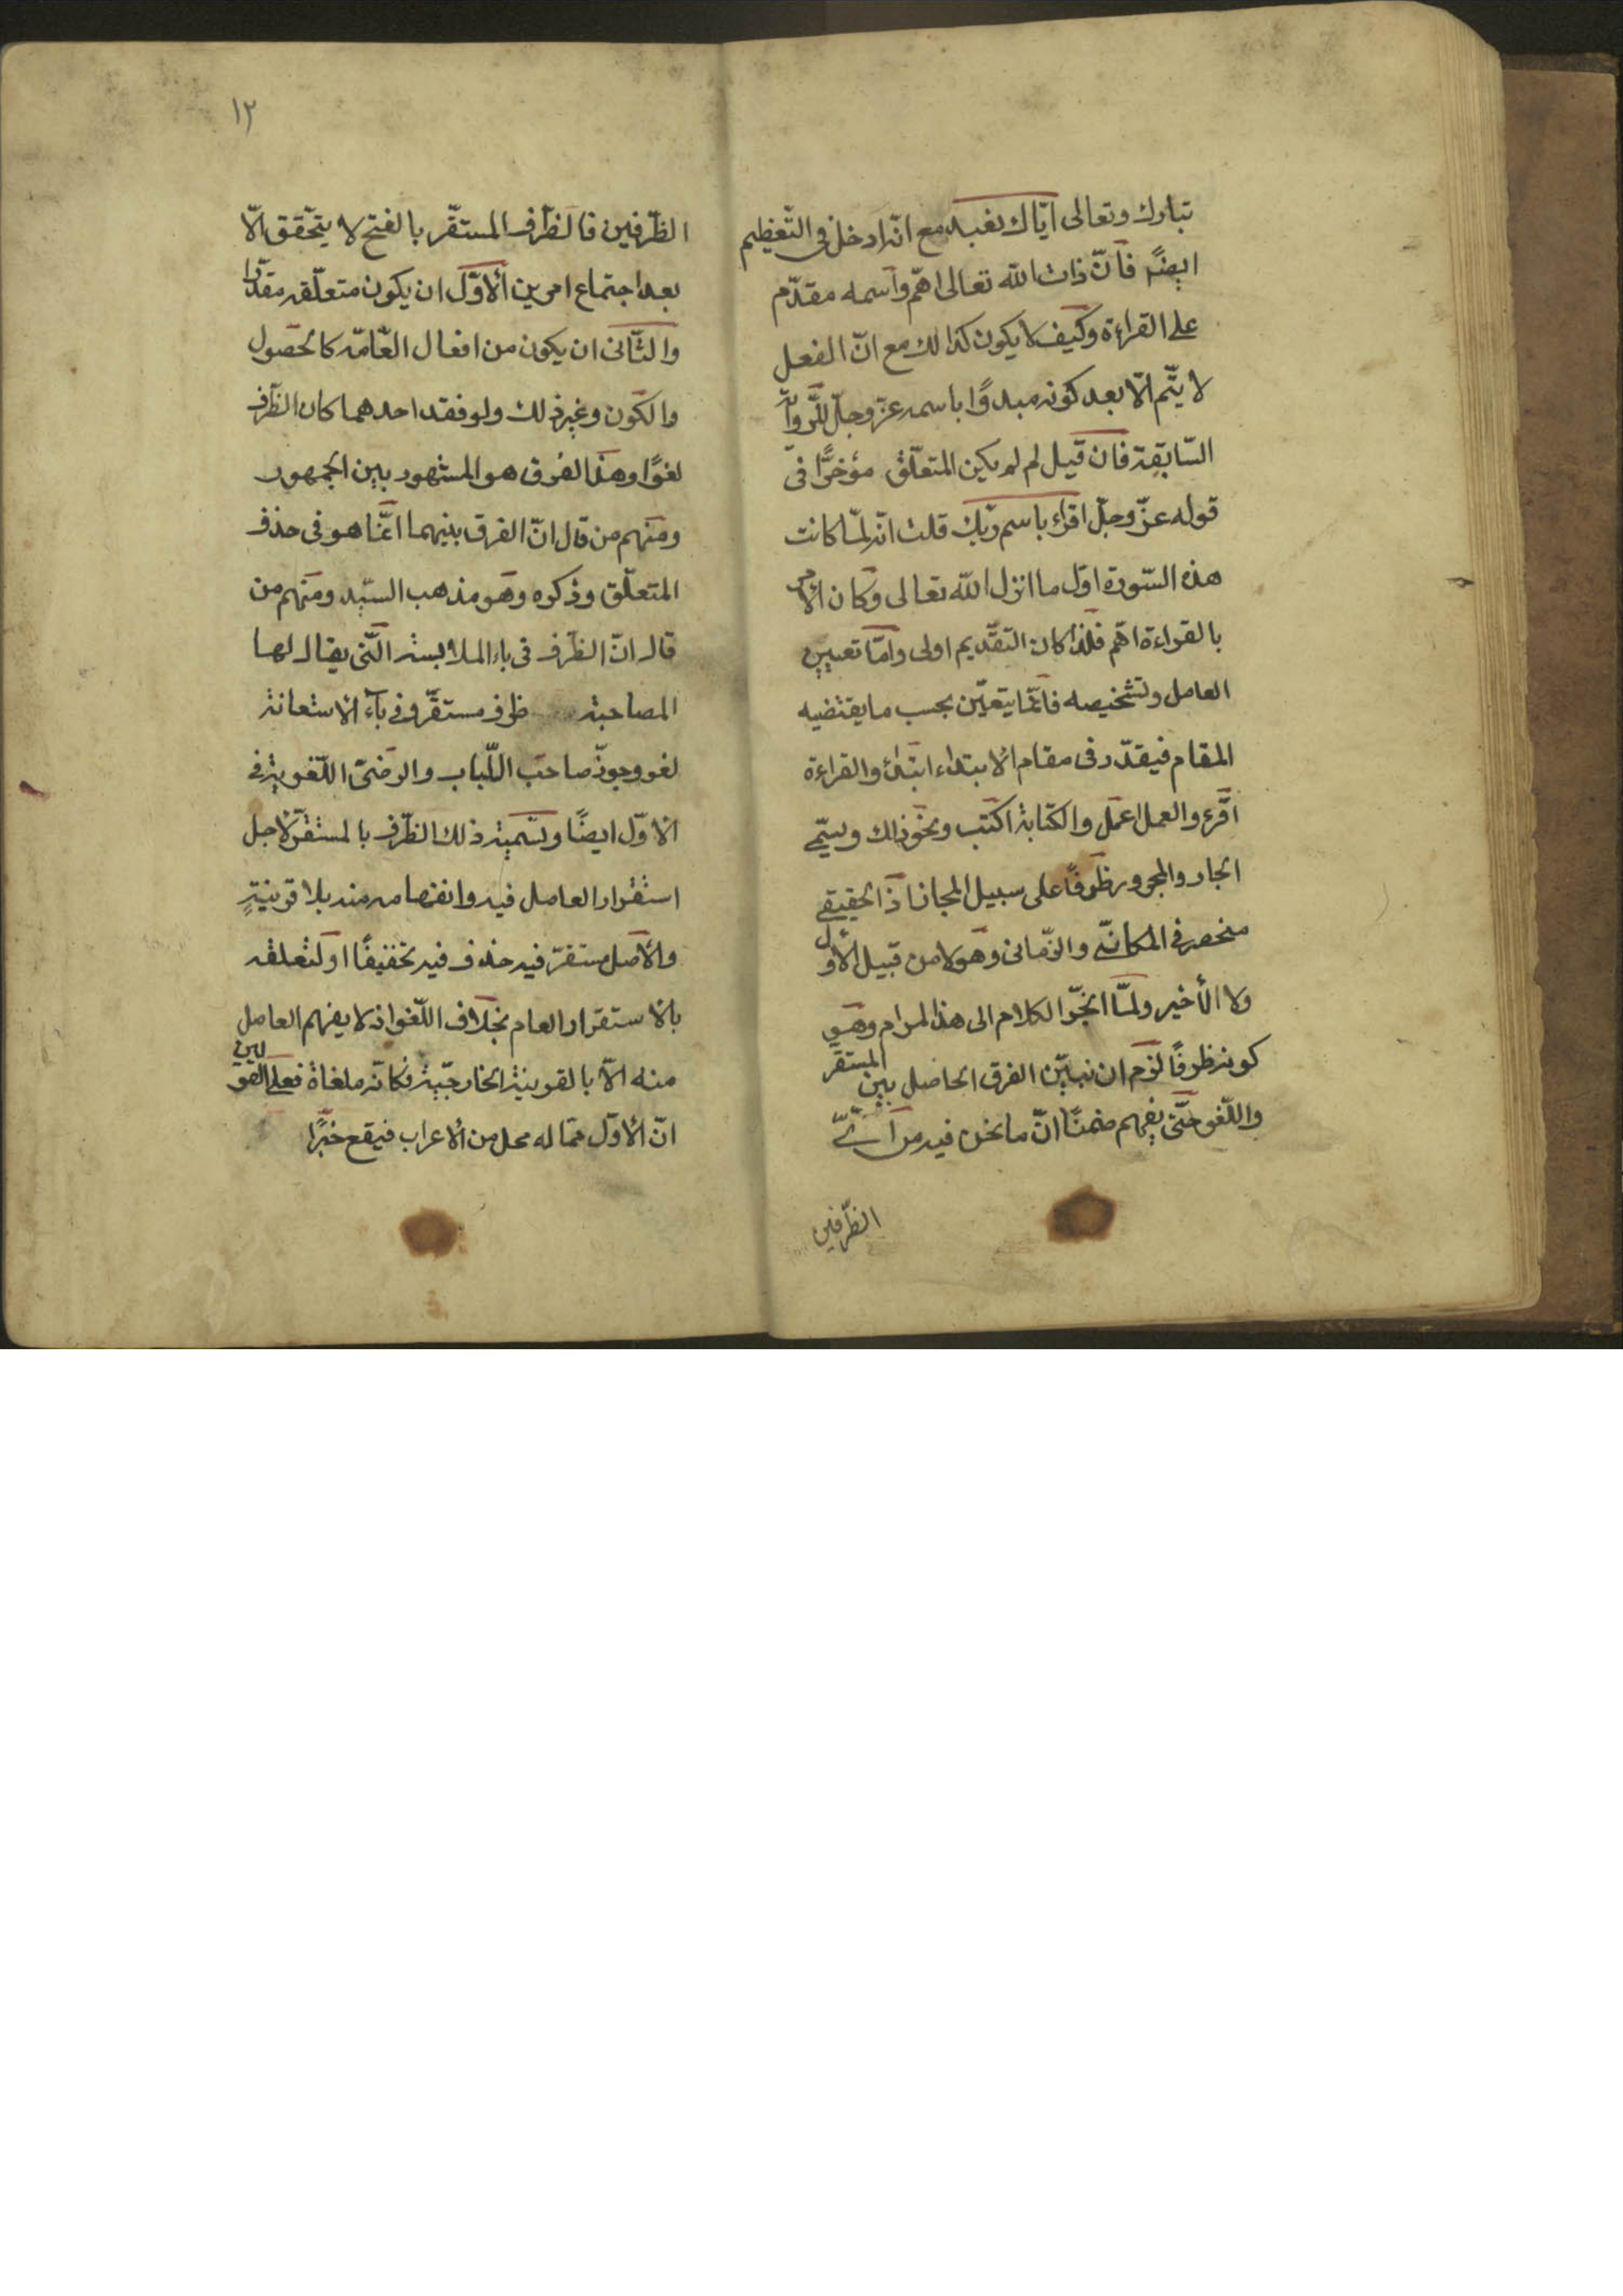 تبارك وتعالى ايّاك نعبد مع انّه ادخل فى التّعظيم
ايضًا فانّ ذات الله تعالى اهمّ واسمه مقدّم
على القراءة وكيف لا يكون كذالك مع انّ الفعل
لا يتّم الّا بعد كونه مبدوًا باسمه عزّ وجلّ للرّواية
السّابقة فان قيل لم لم يكن المتعلّق مؤخرًّا فى
قوله عزّ وجلّ اقراء باسم ربّك قلت انّه لمّا كانت
هذه السّورة اوّل ما انزل الله تعالى وكان الأمر
بالقراءة اهّم فلذا كان التقّديم اولى وامّا تعيين
العامل وتشخيصه فانّما يتعيّن بحسب ما يقتضيه
المقام فيقدّر فى مقام الابتداء ابتدأ والقراءة
اقرء والعمل اعمل والكتابة اكتب ونحو ذالك ويسمّى
الجار والمجرور ظروفًا على سبيل المجاز اذ الحقيقى
منحصر فى المكانىّ والزمّانى وهو لا من قبيل الأوّل
ولا الأخير ولمّا انجرّ الكلام الى هذ المرام وهو
كونه ظروفًا لزم ان نبيّن الفرق الحاصل بين المستقر
واللّغو حتّى يفهم ضمنًا انّ ما نحن فيه من اىّ
الظّرفين
١٢
الظّرفين فالظّرف المستقّر بالفتح لا يتحّقق الّا
بعد اجتماع امرين الأوّل ان يكون متعلّقه مقدّرا
والثّانى ان يكون من افعال العّامّه كالحصول
والكون وغير ذلك ولو فقد احدهما كان الظّرف
لغوًا وهذا الفرق هو المشهور بين الجمهور
ومنهم من قال انّ الفرق بينهما انّما هو فى حذف
المتعلّق وذكره وهو مذهب السّيد ومنهم من
قال انّ الظّرف فى باء الملابسة الّتى يقال لها
المصاحبة ظرف مستقرّ وفى باء الاستعانة
لغو وجوّز صاحب اللّباب والرضىّ اللّغوية فى
الاوّل ايضًا وتسمية ذلك الظّرف بالمستقرّ لاجل
استقرار العامل فيه وانفهامه منه بلا قرينةٍ
والأصل مستقرّ فيه حذف فيه تخفيفًا او لتعلقه
بالاستقرار العام بخلاف اللّغو اذ لا يفهم العامل
منه الّا بالقرينة الخارجّية فكانّه ملغاة فعلى القولين
انّ الأوّل ممّا له محل من الأعراب فيقع خبرًا